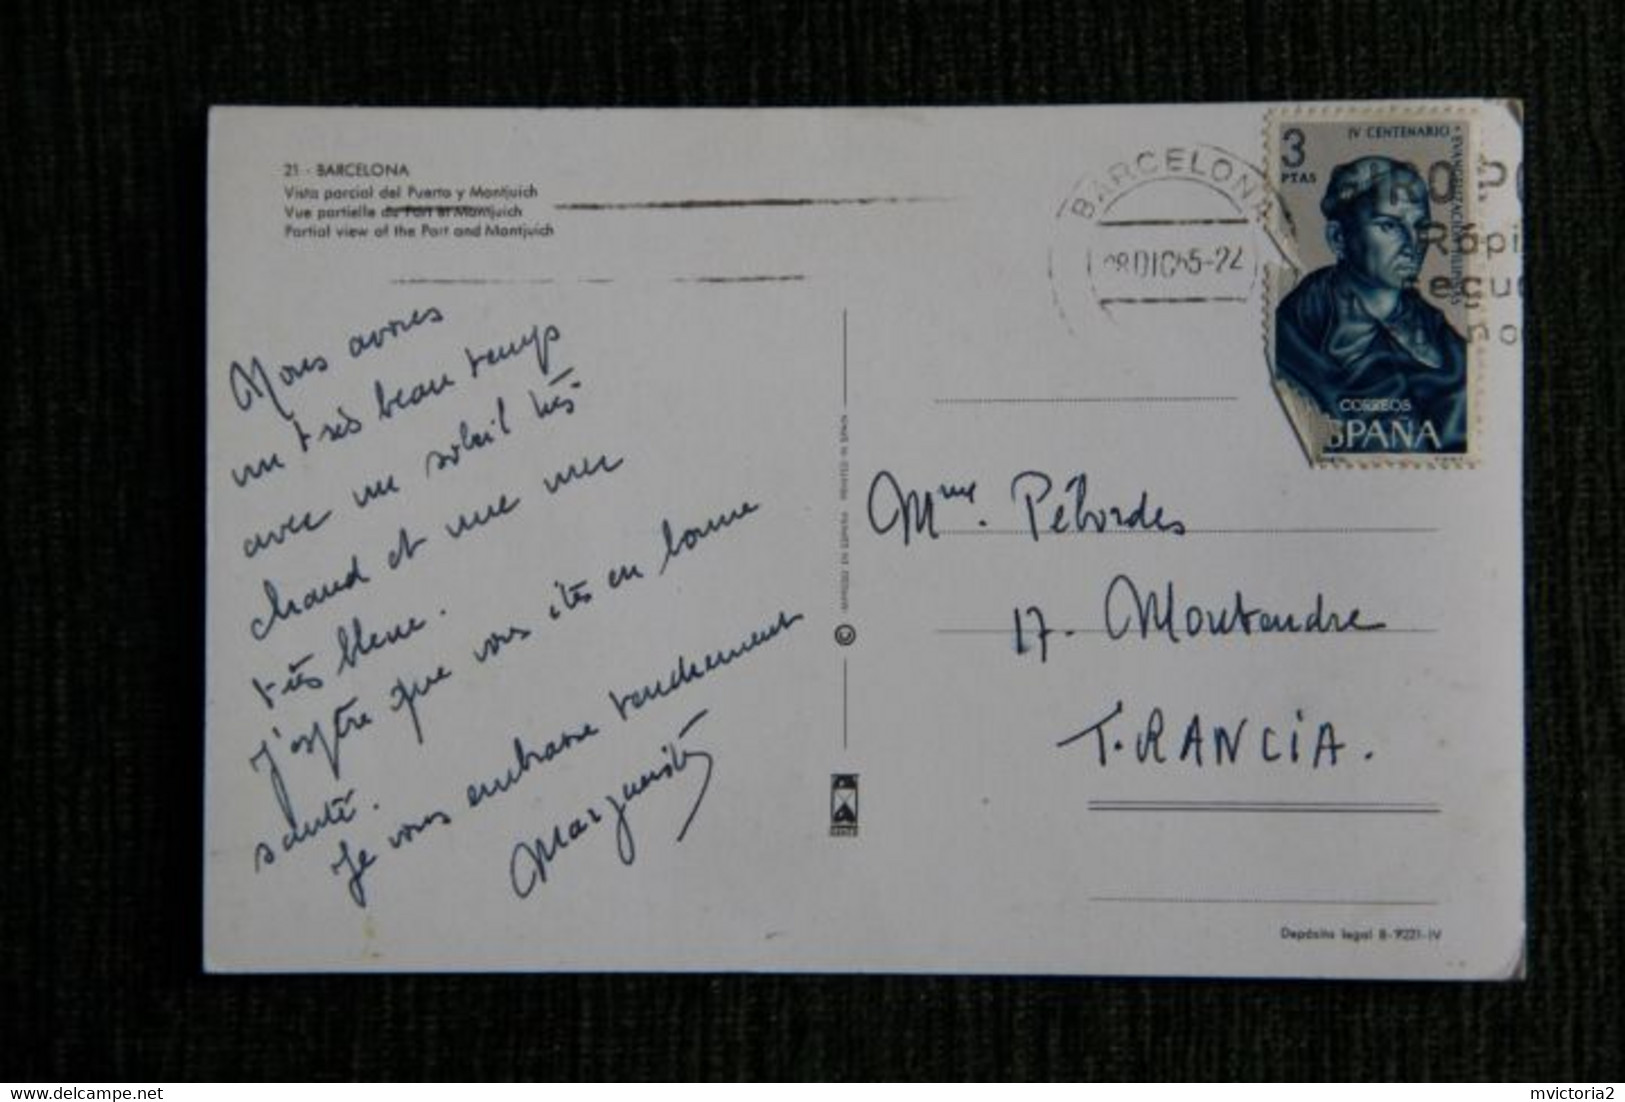 21 - BARCELONA
Vista parcial del Puerto y Montjuich
Vue partielle du Port et Montjuich
Partial view of the Port and Montjuich
Nous avons
un très beau temps
avec un soleil très
chaud et une mer
très bleue.
J'espère que vous êtes en bonne
santé.
Je vous embrasse tendrement
Marguerite
PRINTED IN SPAIN
©
BARCELONA
DIC 65-22
3
PTAS
IV CENTENARIO
CORREOS
ESPAÑA
GIRO PO
Rápi
ecu
no
Mme. Pébordes
17. Montendre
FRANCIA.
Depósito legal B-9221-IV
mvictoria2